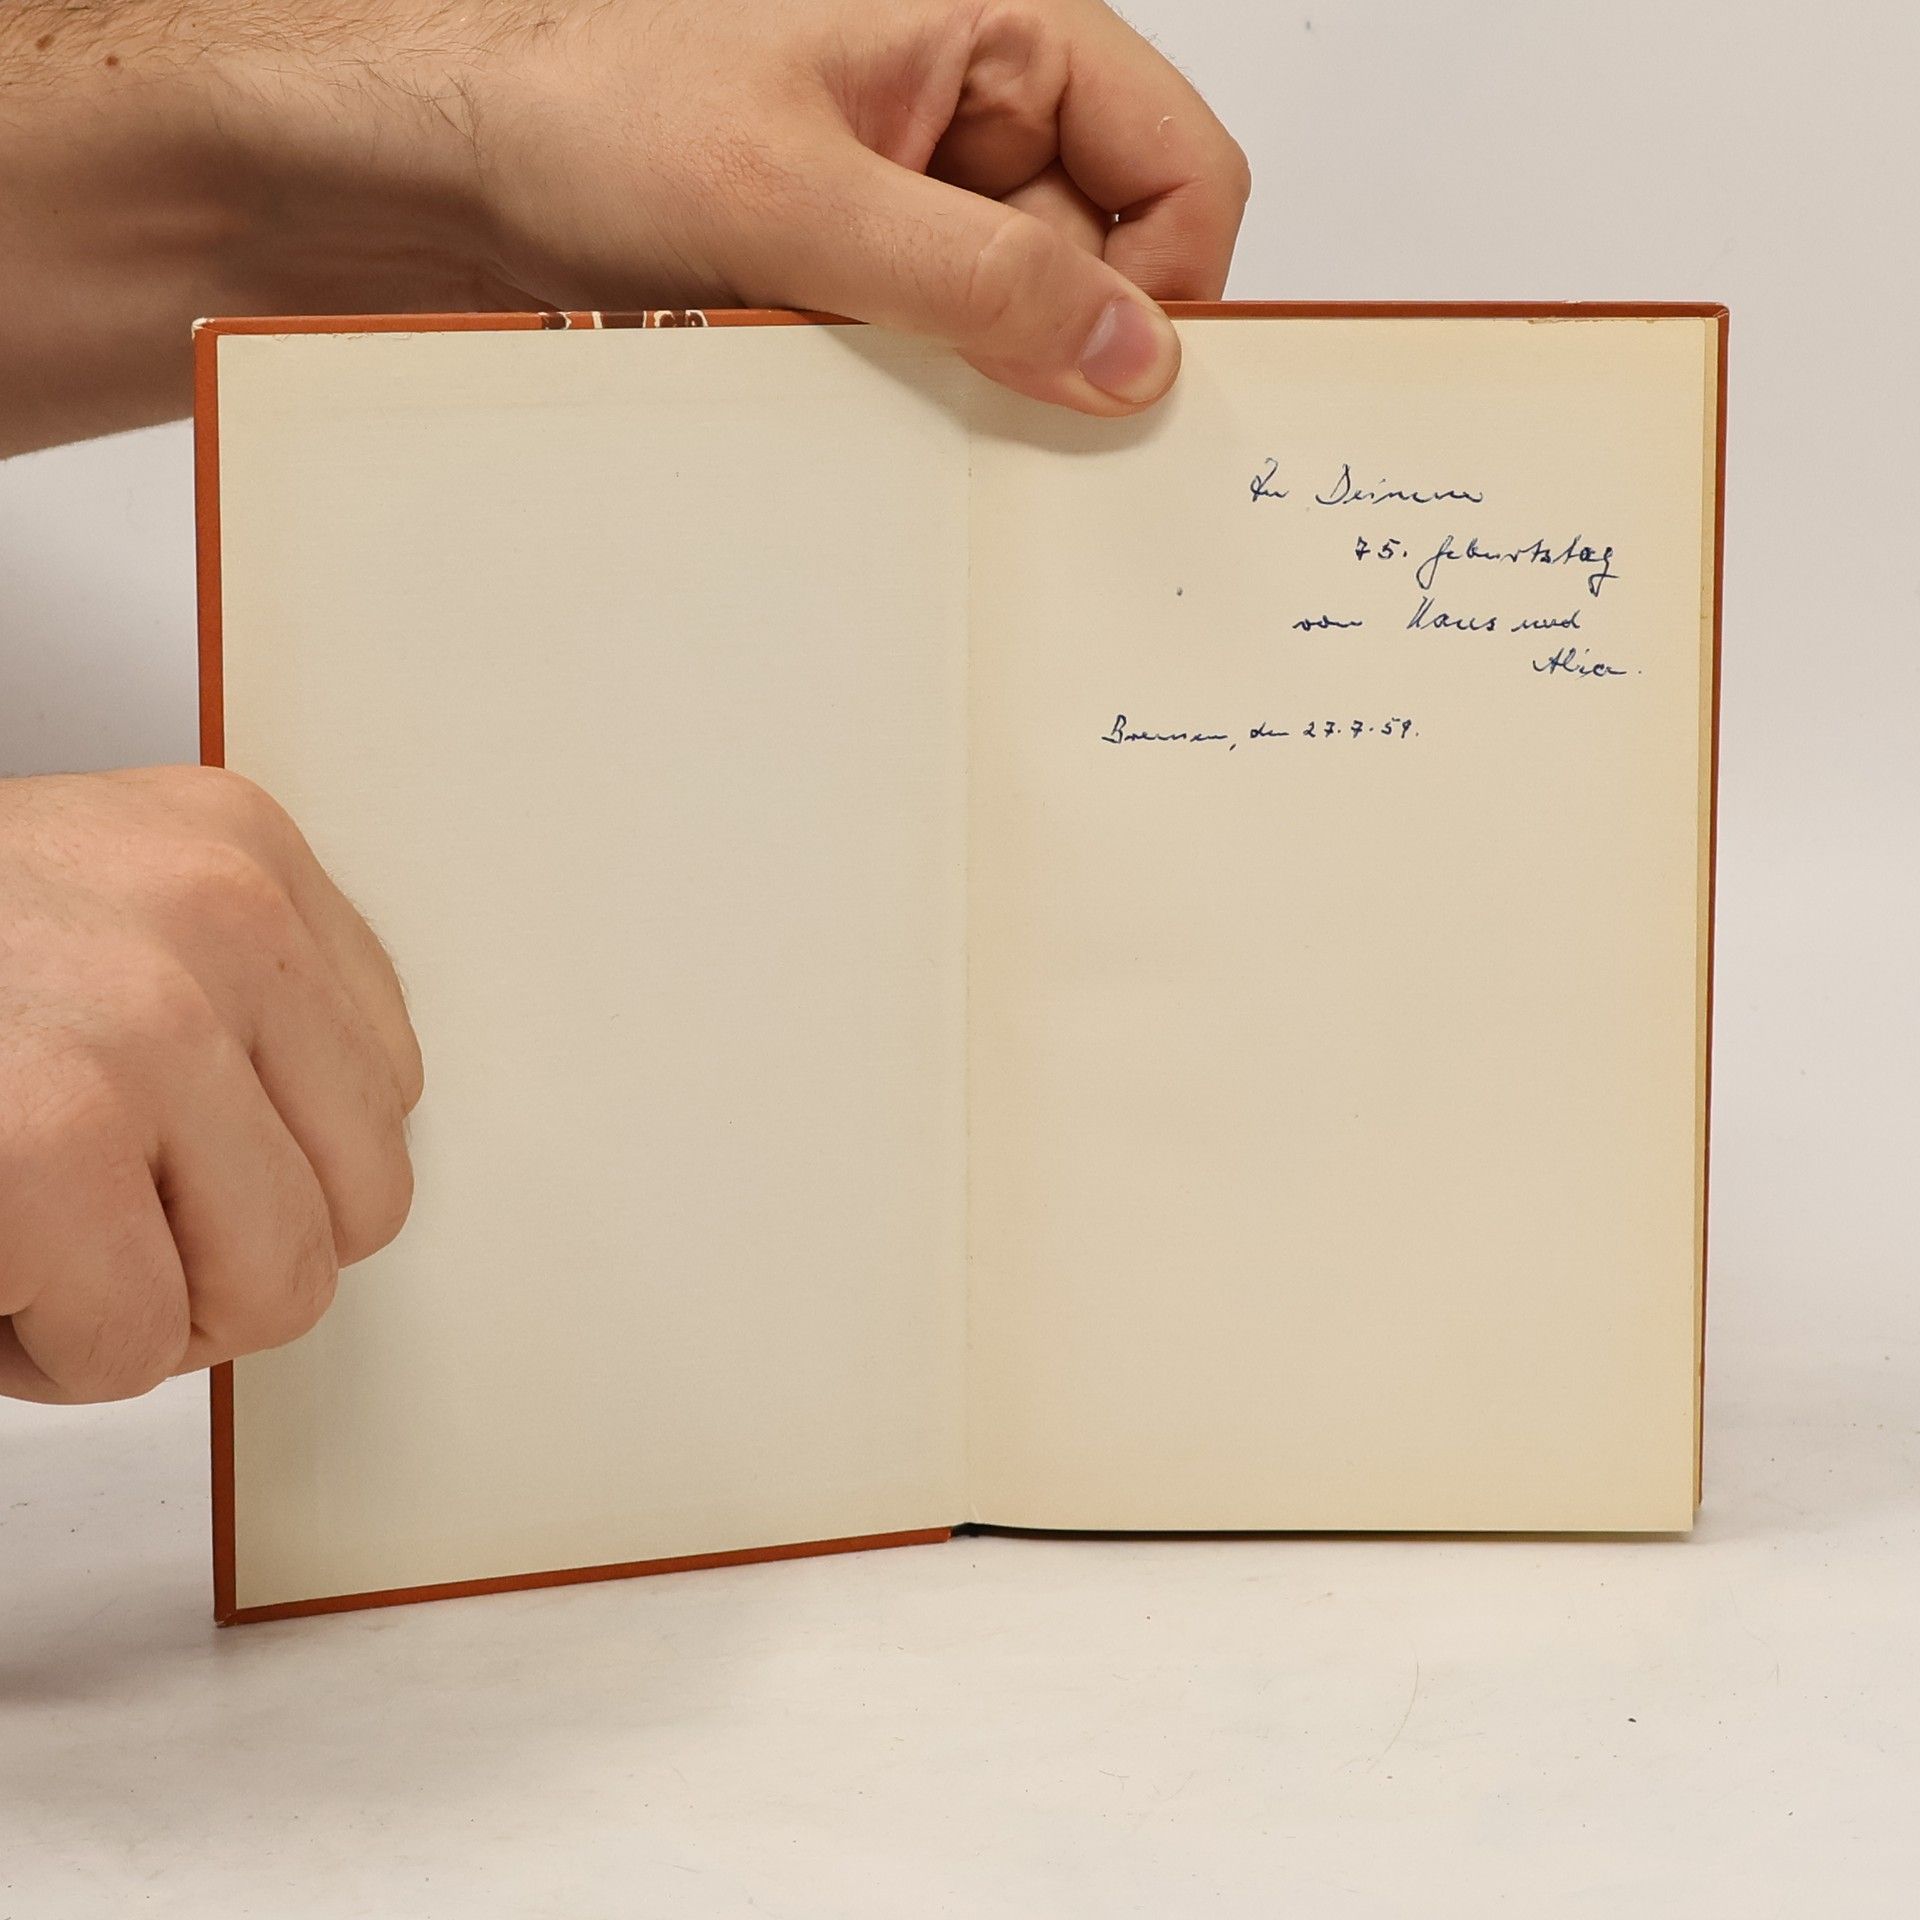 Zu Deinem
75. Geburtstag
von Hans und
Bremen, den 27.7.59.